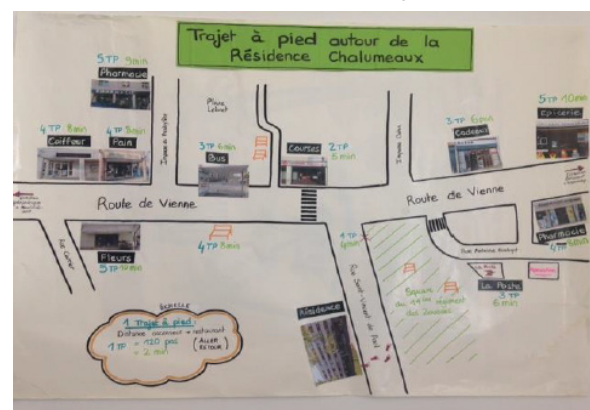 Trajet à pied autour de la
Résidence Chalumeaux
5 TP 9min
Pharmacie
4 TP 8min
Coiffeur
4 TP 8min
Pain
Place
3 TP 6min
Bus
Courses
2 TP
5 min
3 TP 6min
Cadeaux
5 TP 10min
Epicerie
Route de Vienne
Route de Vienne
Fleurs
5 TP 10min
4 TP 8min
1 TP
4min
Pharmacie
4 TP 8min
La Poste
3 TP
6 min
Square
du
régiment
des Zouaves
Rue Saint-Vincent de Paul
Résidence
1 Trajet à pied:
Distance ascenseur → restaurant
1 TP = 120 pas
= 2 min
(ALLER
RETOUR)